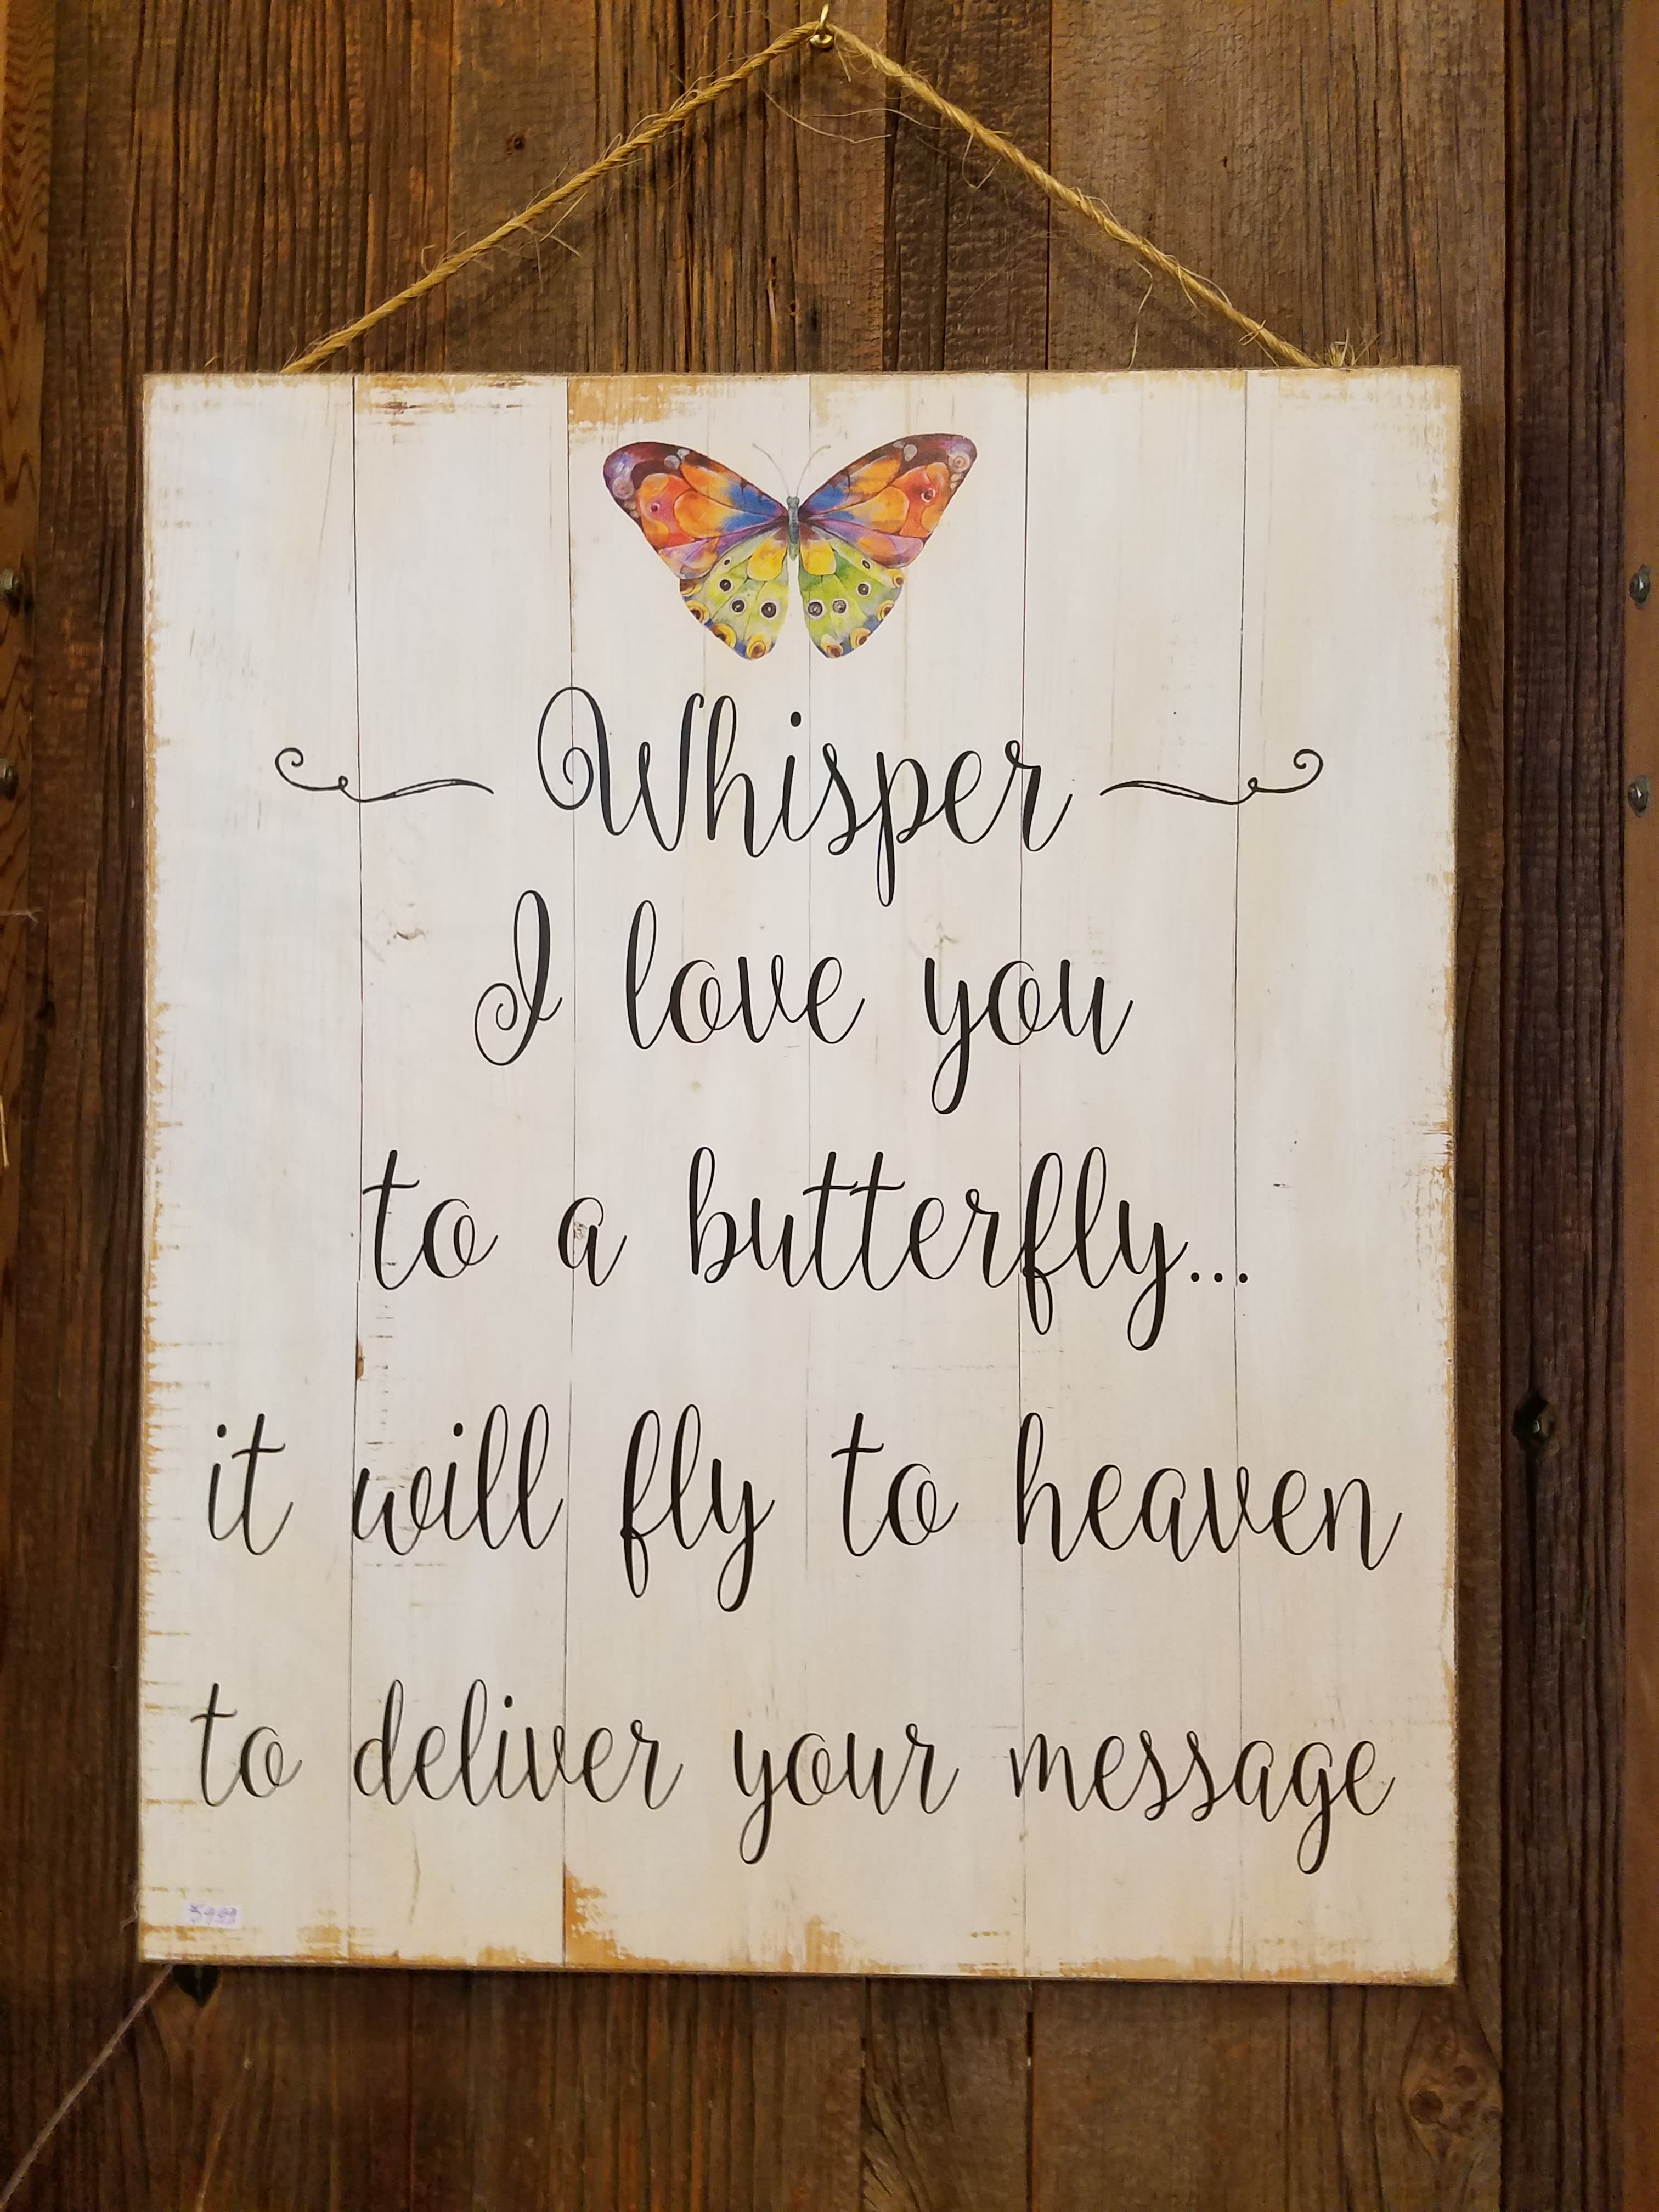 Whisper
I love you
to a butterfly...
it will fly to heaven
to deliver your message